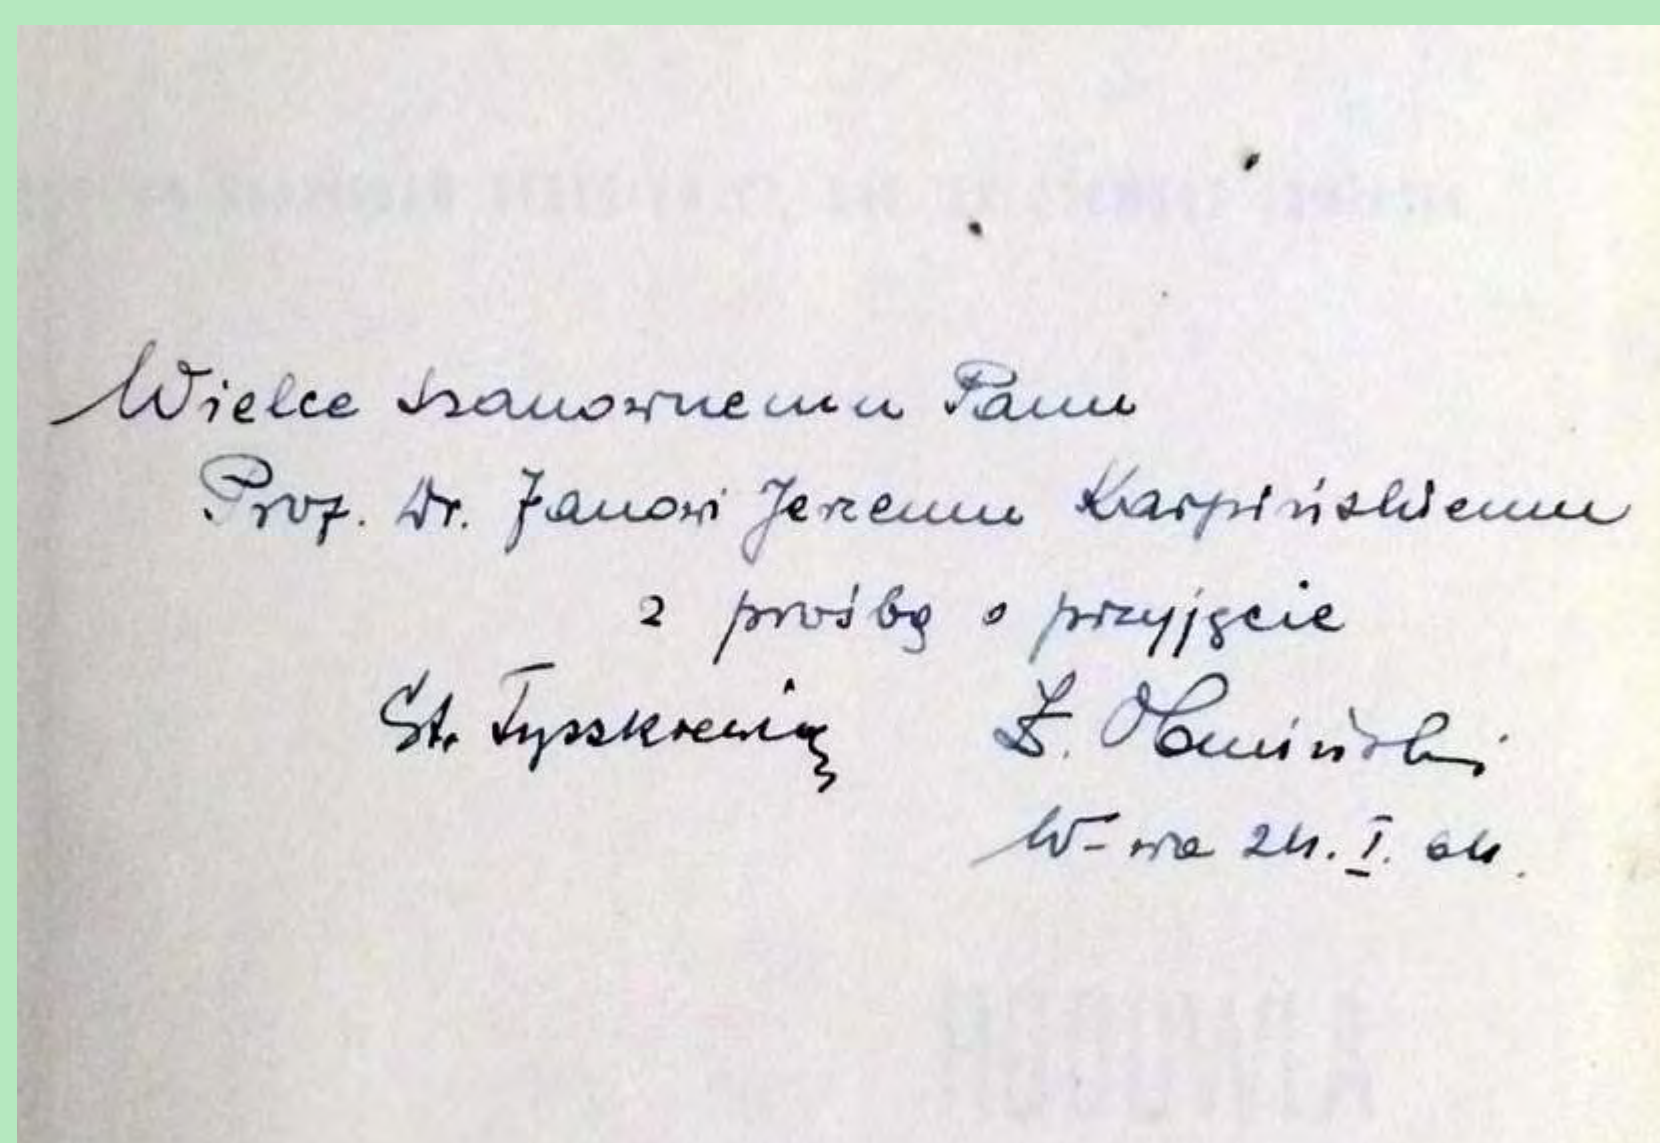 Wielce szanownemu Panu
Prof. Dr. Janowi Jerzemu Karpińskiemu
z prośbą o przyjęcie
St. Tyszkiewicz Z. Obmiński
W-wa 24. I. 64.